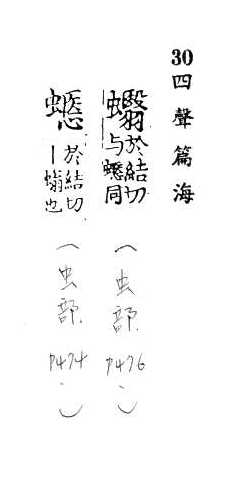 30四聲篇海
於結切
与同
（虫部 P476.）
於結切
｜螉也
（虫部 P474.）